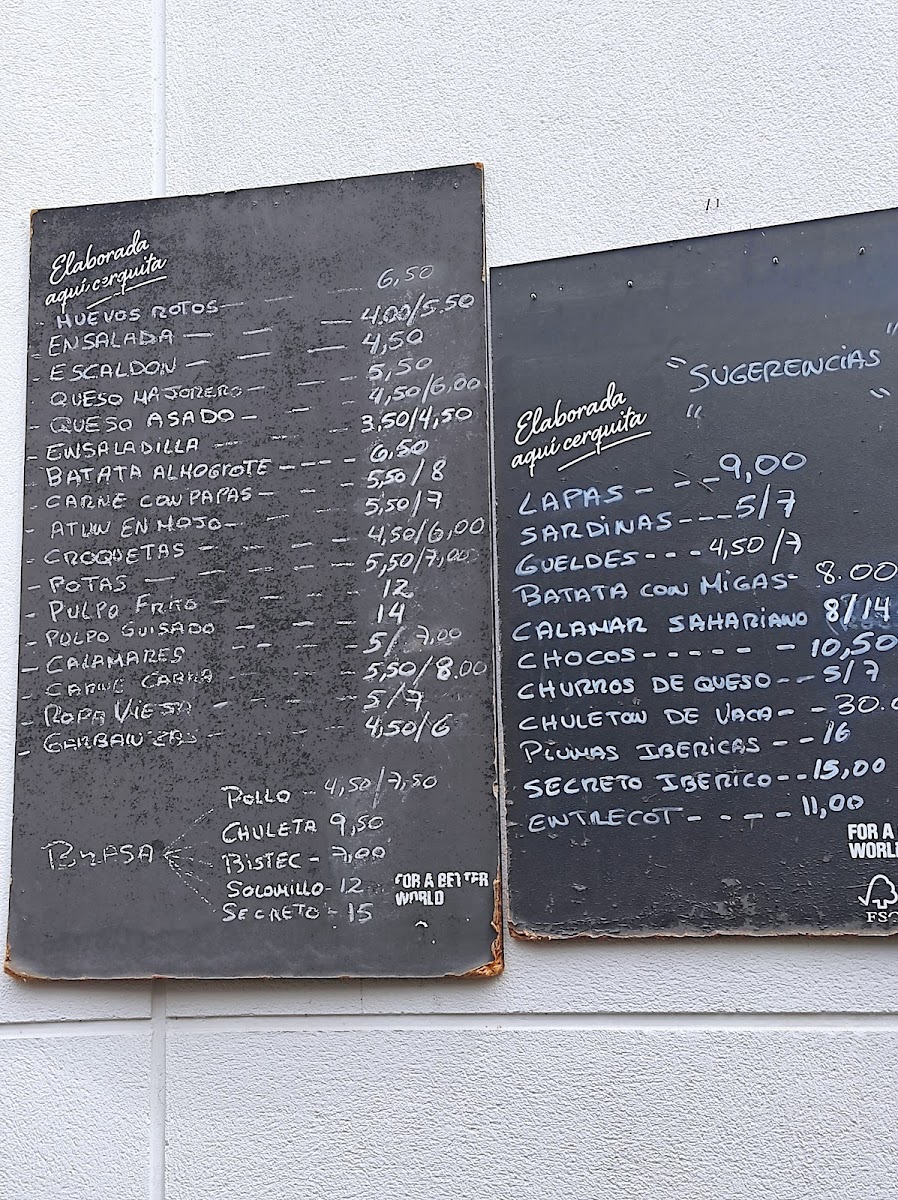 Elaborada
aquí cerquita
- HUEVOS ROTOS — 6,50
- ENSALADA — — — 4.00/5.50
- ESCALDON — — — 4,50
- QUESO MAJORERO — — 5,50
- QUESO ASADO — — — 4,50/6,00
- ENSALADILLA — — — 3,50/4,50
- BATATA ALMOGROTE - - - - 6,50
- CARNE CON PAPAS — — — 5,50/8
- ATUN EN MOJO — — — 5,50/7
- CROQUETAS — — — 4,50/6,00
- POTAS — — — 5,50/7,00
- PULPO FRITO — — — 12
- PULPO GUISADO — — — 14
- CALAMARES — — — 5/7,00
- CARNE CABRA — — — 5,50/8.00
- ROPA VIEJA — — — 5/7
- GARBANZAS — — — 4,50/6
BRASA
POLLO - 4,50/7,50
CHULETA 9,50
BISTEC - 7,00
SOLOMILLO - 12
SECRETO - 15
FOR A BETTER
WORLD
"SUGERENCIAS"
Elaborada
aquí cerquita
LAPAS - - - 9,00
SARDINAS - - - 5/7
GUELDES - - - 4,50/7
BATATA CON MIGAS - 8.00
CALAMAR SAHARIANO 8/14
CHOCOS - - - - - - 10,50
CHURROS DE QUESO - - 5/7
CHULETON DE VACA - - 30.
PLUMAS IBERICAS - - 16
SECRETO IBERICO - - 15,00
ENTRECOT - - - - 11,00
FOR A
WORL
FSC